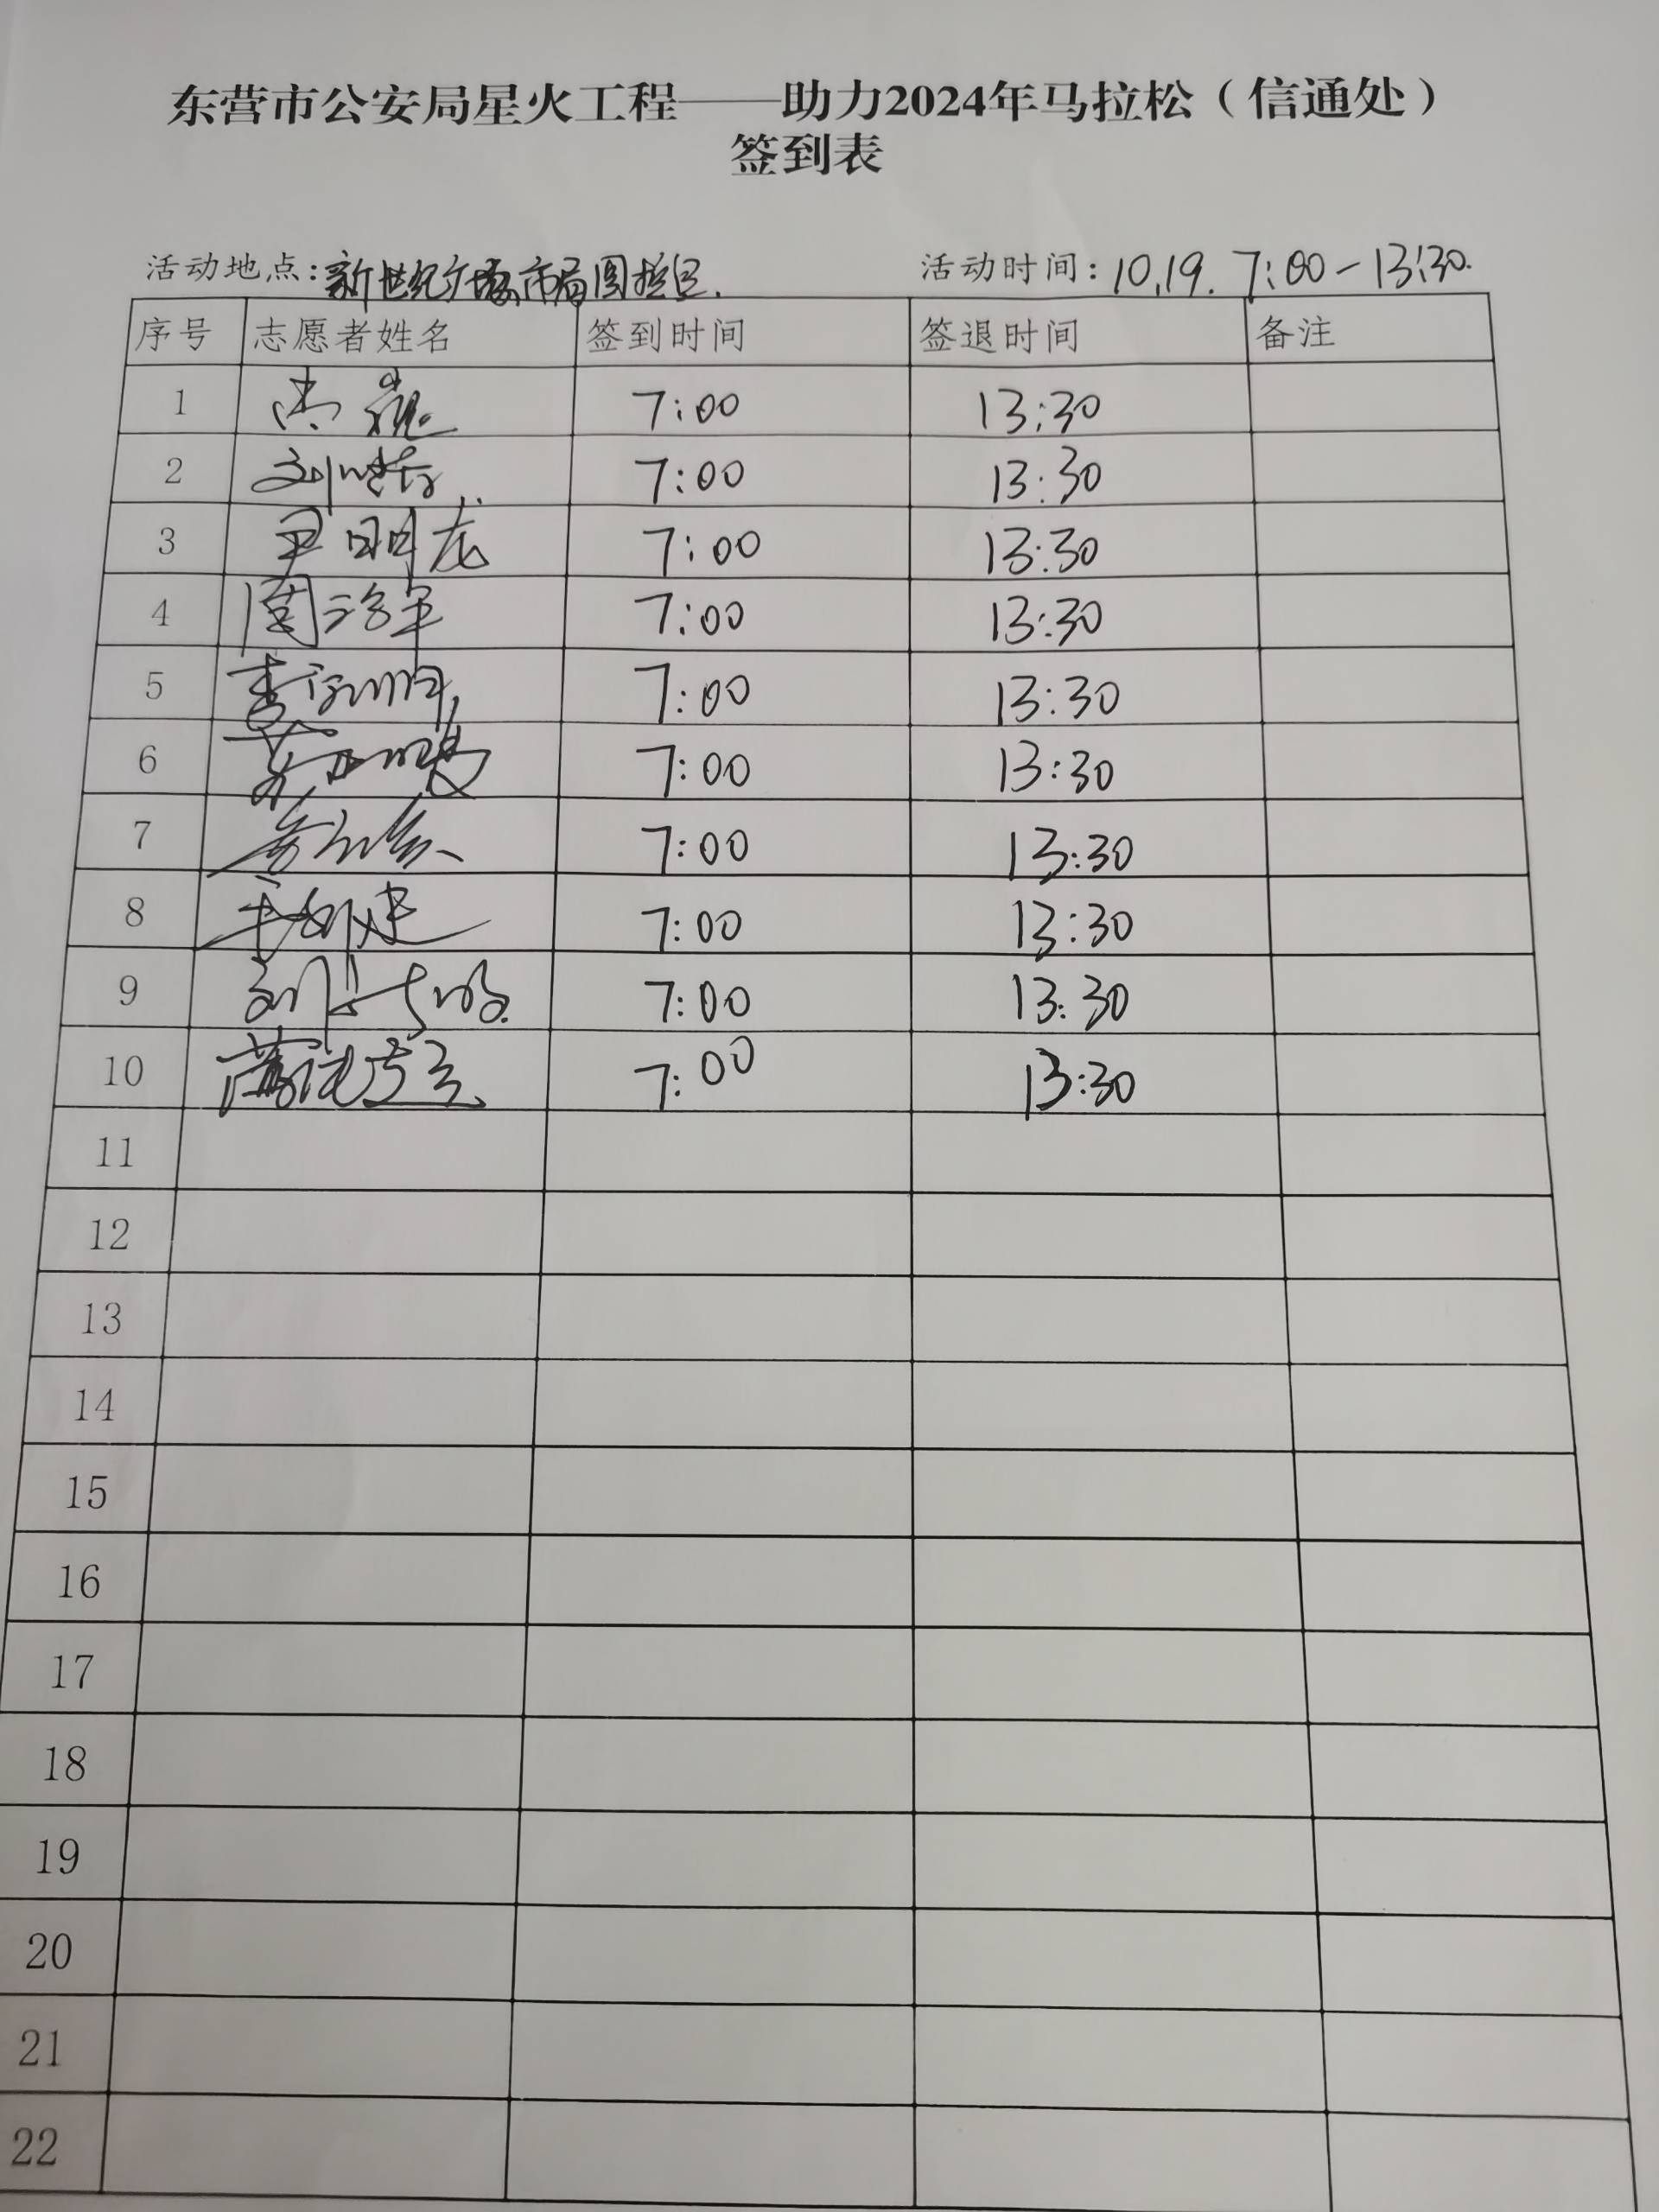 东营市公安局星火工程——助力2024年马拉松（信通处）
签到表
活动地点：新世纪广场市局圆 活动时间：10.19. 7:00-13:30.
序号 志愿者姓名 签到时间 签退时间 备注
1 7:00 13:30
2 刘 7:00 13:30
3 尹明龙 7:00 13:30
4 周治军 7:00 13:30
5 李 7:00 13:30
6 7:00 13:30
7 7:00 13:30
8 建 7:00 13:30
9 刘 7:00 13:30
10 7:00 13:30
11
12
13
14
15
16
17
18
19
20
21
22